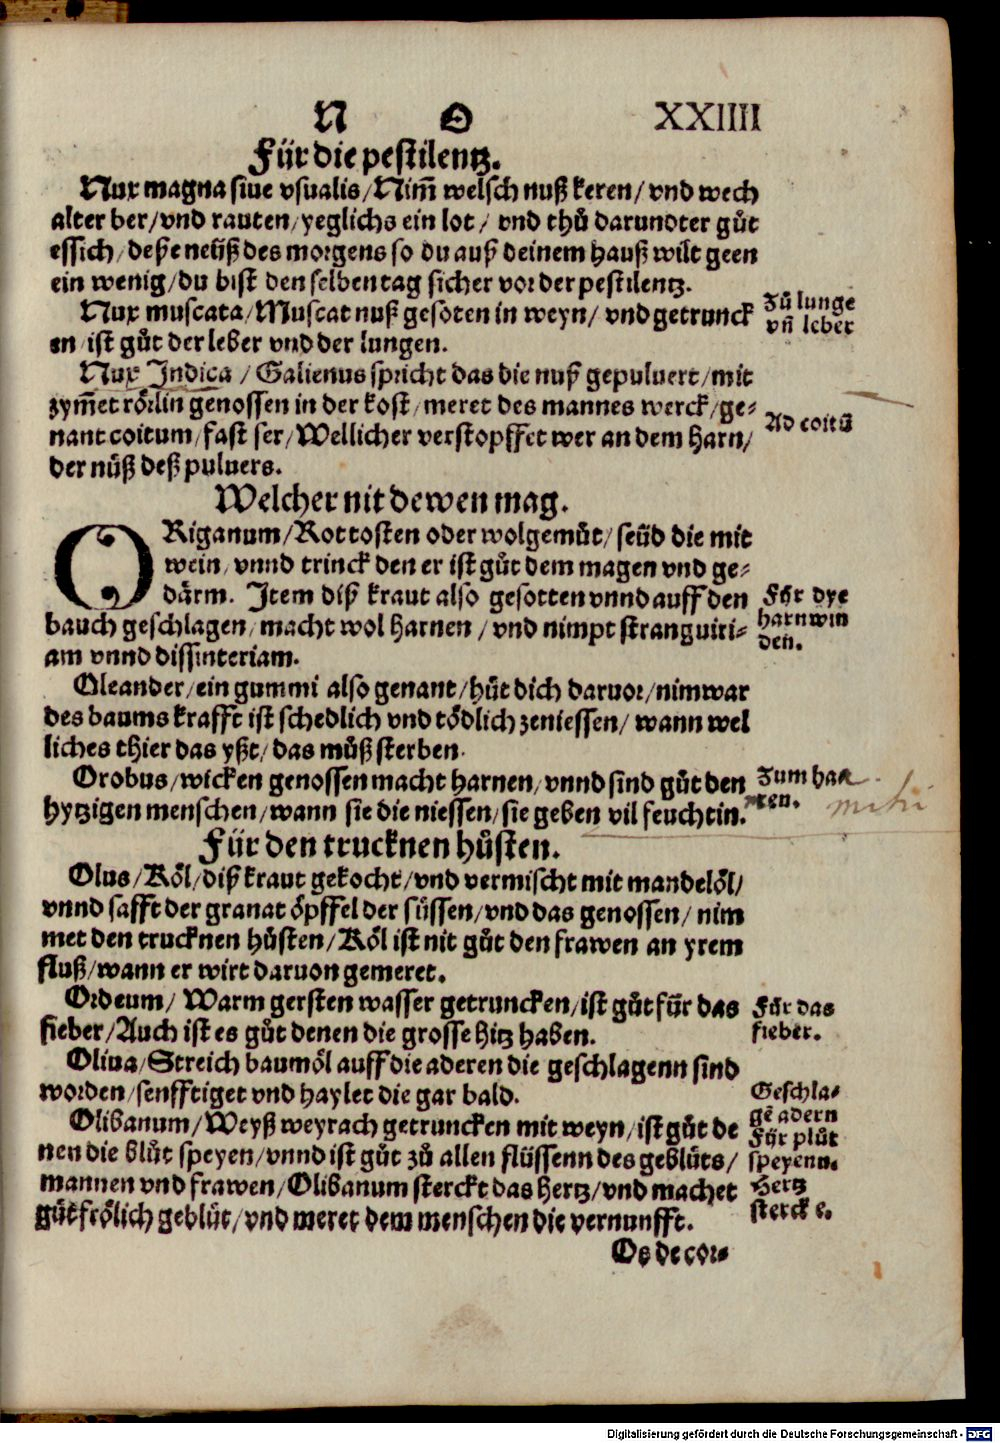 N O XXIIII
Für die pestilentz.
Nux magna siue vsualis/Nim̄ welsch nuß keren/vnd wech
alter ber/vnd rauten/yeglichs ein lot/ vnd thů darundter gůt
essich/deße neüß des morgens so du auß deinem hauß wilt geen
ein wenig/du bist den selben tag sicher vor der pestilentz.
Nux muscata/Muscat nuß gesoten in weyn/ vnd getrunck
en/ist gůt der leber vnd der lungen.
Zů lunge
vn̄ leber
Nux Indica/Galienus spricht das die nuß gepuluert/mit
zym̄et rörlin genossen in der kost/meret des mannes werck/ge⸗
nant coitum/fast ser/Wellicher verstopffet wer an dem harn/
der nüß deß puluers.
Ad coitū
Welcher nit dewen mag.
ORiganum/Rottosten oder wolgemůt/seüd die mit
wein/vnnd trinck den er ist gůt dem magen vnd ge⸗
därm. Item diß kraut also gesotten vnnd auff den
bauch geschlagen/macht wol harnen/vnd nimpt stranguiri⸗
am vnnd dissinteriam.
Für dye
harnwin
den.
Oleander/ein gummi also genant/hüt dich daruor/nimwar
des baums krafft ist schedlich vnd tödlich zeniessen/ wann wel
liches thier das yßt/das můß sterben.
Orobus/wicken genossen macht harnen/vnnd sind gůt den
hytzigen menschen/wann sie die niessen/sie geben vil feuchtin.
Zum har
nen.
Für den trucknen hůsten.
Olus/Köl/diß kraut gekocht/vnd vermischt mit mandelöl/
vnnd safft der granat öpffel der süssen/vnd das genossen/ nim
met den trucknen hůsten/Köl ist nit gůt den frawen an yrem
fluß/wann er wirt daruon gemeret.
Ordeum/ Warm gersten wasser getruncken/ist gůt für das
fieber/Auch ist es gůt denen die grosse hitz haben.
Für das
fieber.
Oliua/Streich baumöl auff die aderen die geschlagenn sind
worden/senfftiget vnd haylet die gar bald.
Geschla⸗
gē adern
Olibanum/Weyß weyrach getruncken mit weyn/ist gůt de
nen die blůt speyen/vnnd ist gůt zů allen flüssenn des geblůts/
mannen vnd frawen/Olibanum sterckt das hertz/vnd machet
gůt frölich geblůt/vnd meret dem menschen die vernunfft.
Für plůt
speyenn.
Hertz
stercke.
Os de cor⸗
Digitalisierung gefördert durch die Deutsche Forschungsgemeinschaft - DFG